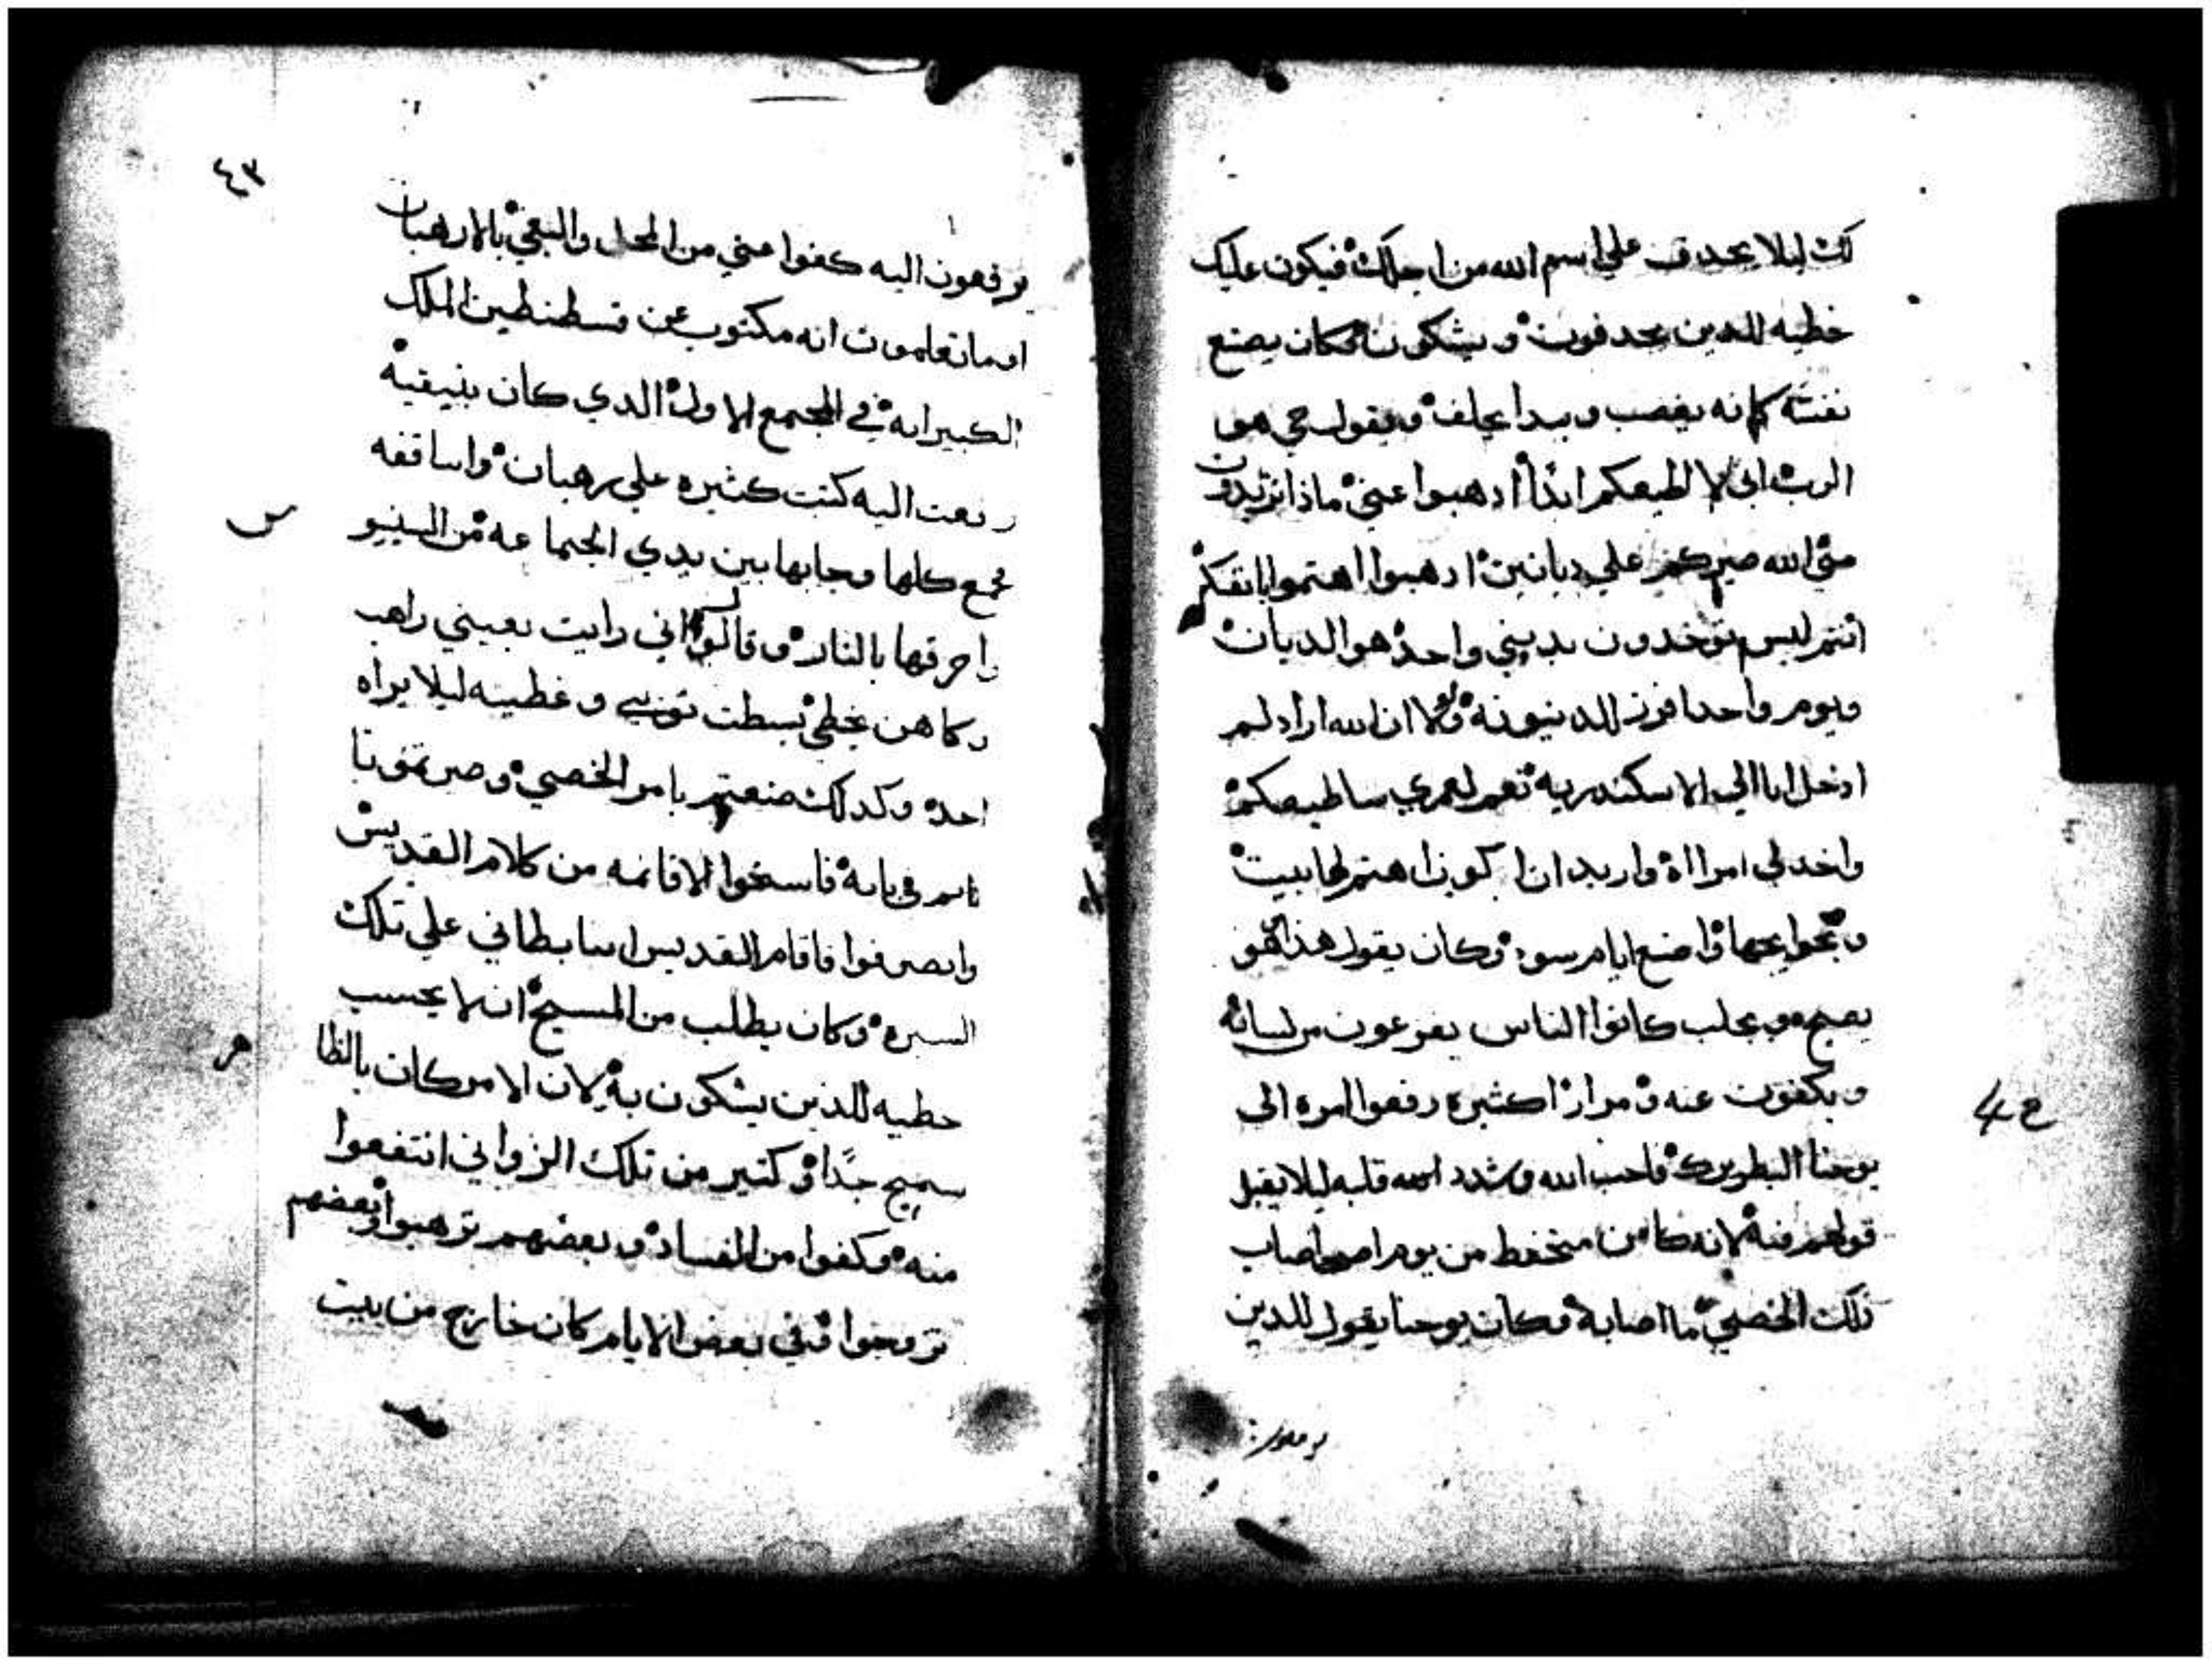 لك ليلا يجدف علي اسم الله من اجلك فيكون عليك
خطيه للدين يجدفون ويشكون فكان يصنع
نفسه كانه يغصب ويبدا يحلف ويقول حي هو
الرب اني لا اطيعكم ابدا ادهبوا عني ماذا تريدون
مني الله صيركم علي ديانين ادهبوا اهتموا بانفسكم
انتم ليس توخدون بديني واحد هو الديان
ويوم واحد للدينونه ولولا ان الله اراد لم
ادخل انا الي الاسكندريه نعم لعمري ساطيعكم
واخد لي امرااة واريد ان اكون اهتم لها ببيت
واصنع ايام سوء وكان يقول هذا
يصيح ويحلب كانوا الناس يفزعون من لسانه
ويكفون عنه ومرارا كثيره رفعوا امره الي
يوحنا البطريرك فاحب الله وشدد اسمه قلبه ليلا يقبل
قولهم فيه لانه كان متحفظ من يوم اصاب
دلك الخصي ما اصابه وكان يوحنا يقول للدين
يرفعون
٤٣
يرفعون اليه كفوا عني من المحل والبغي بالارهبان
اوما تعلمون انه مكتوب عن قسطنطين الملك
الكبير انه في المجمع الاول الدي كان بنيقية
رفعت اليه كتب كثيره علي رهبان واساقفه
فجمع كلها وجابها بين يدي الجماعه من
واحرقها بالنار وقال لو اني رايت بعيني راهب
وكاهن يخطي بسطت توبي وغطيته ليلا يراه
احد وكدلك صنعتم بامر الخصي وصرتمونا
ناتم في بابه فاسغوا الاقانمه من كلام القديس
وانصرفوا فاقام القديس انبا بيطالي علي تلك
السيره وكان يطلب من المسيح ان لا يحسب
خطيه للذين يشكون به لان الامر كان بالظا
سميج جدا وكتير من تلك الزواني انتفعوا
منه وكفوا من الفساد وبعضهم ترهبوا وبعضهم
تزوجوا وفي بعض الايام كان خارج من بيت